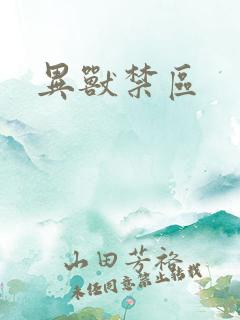 異獸禁區
山田芳裕
未經同意禁止轉載